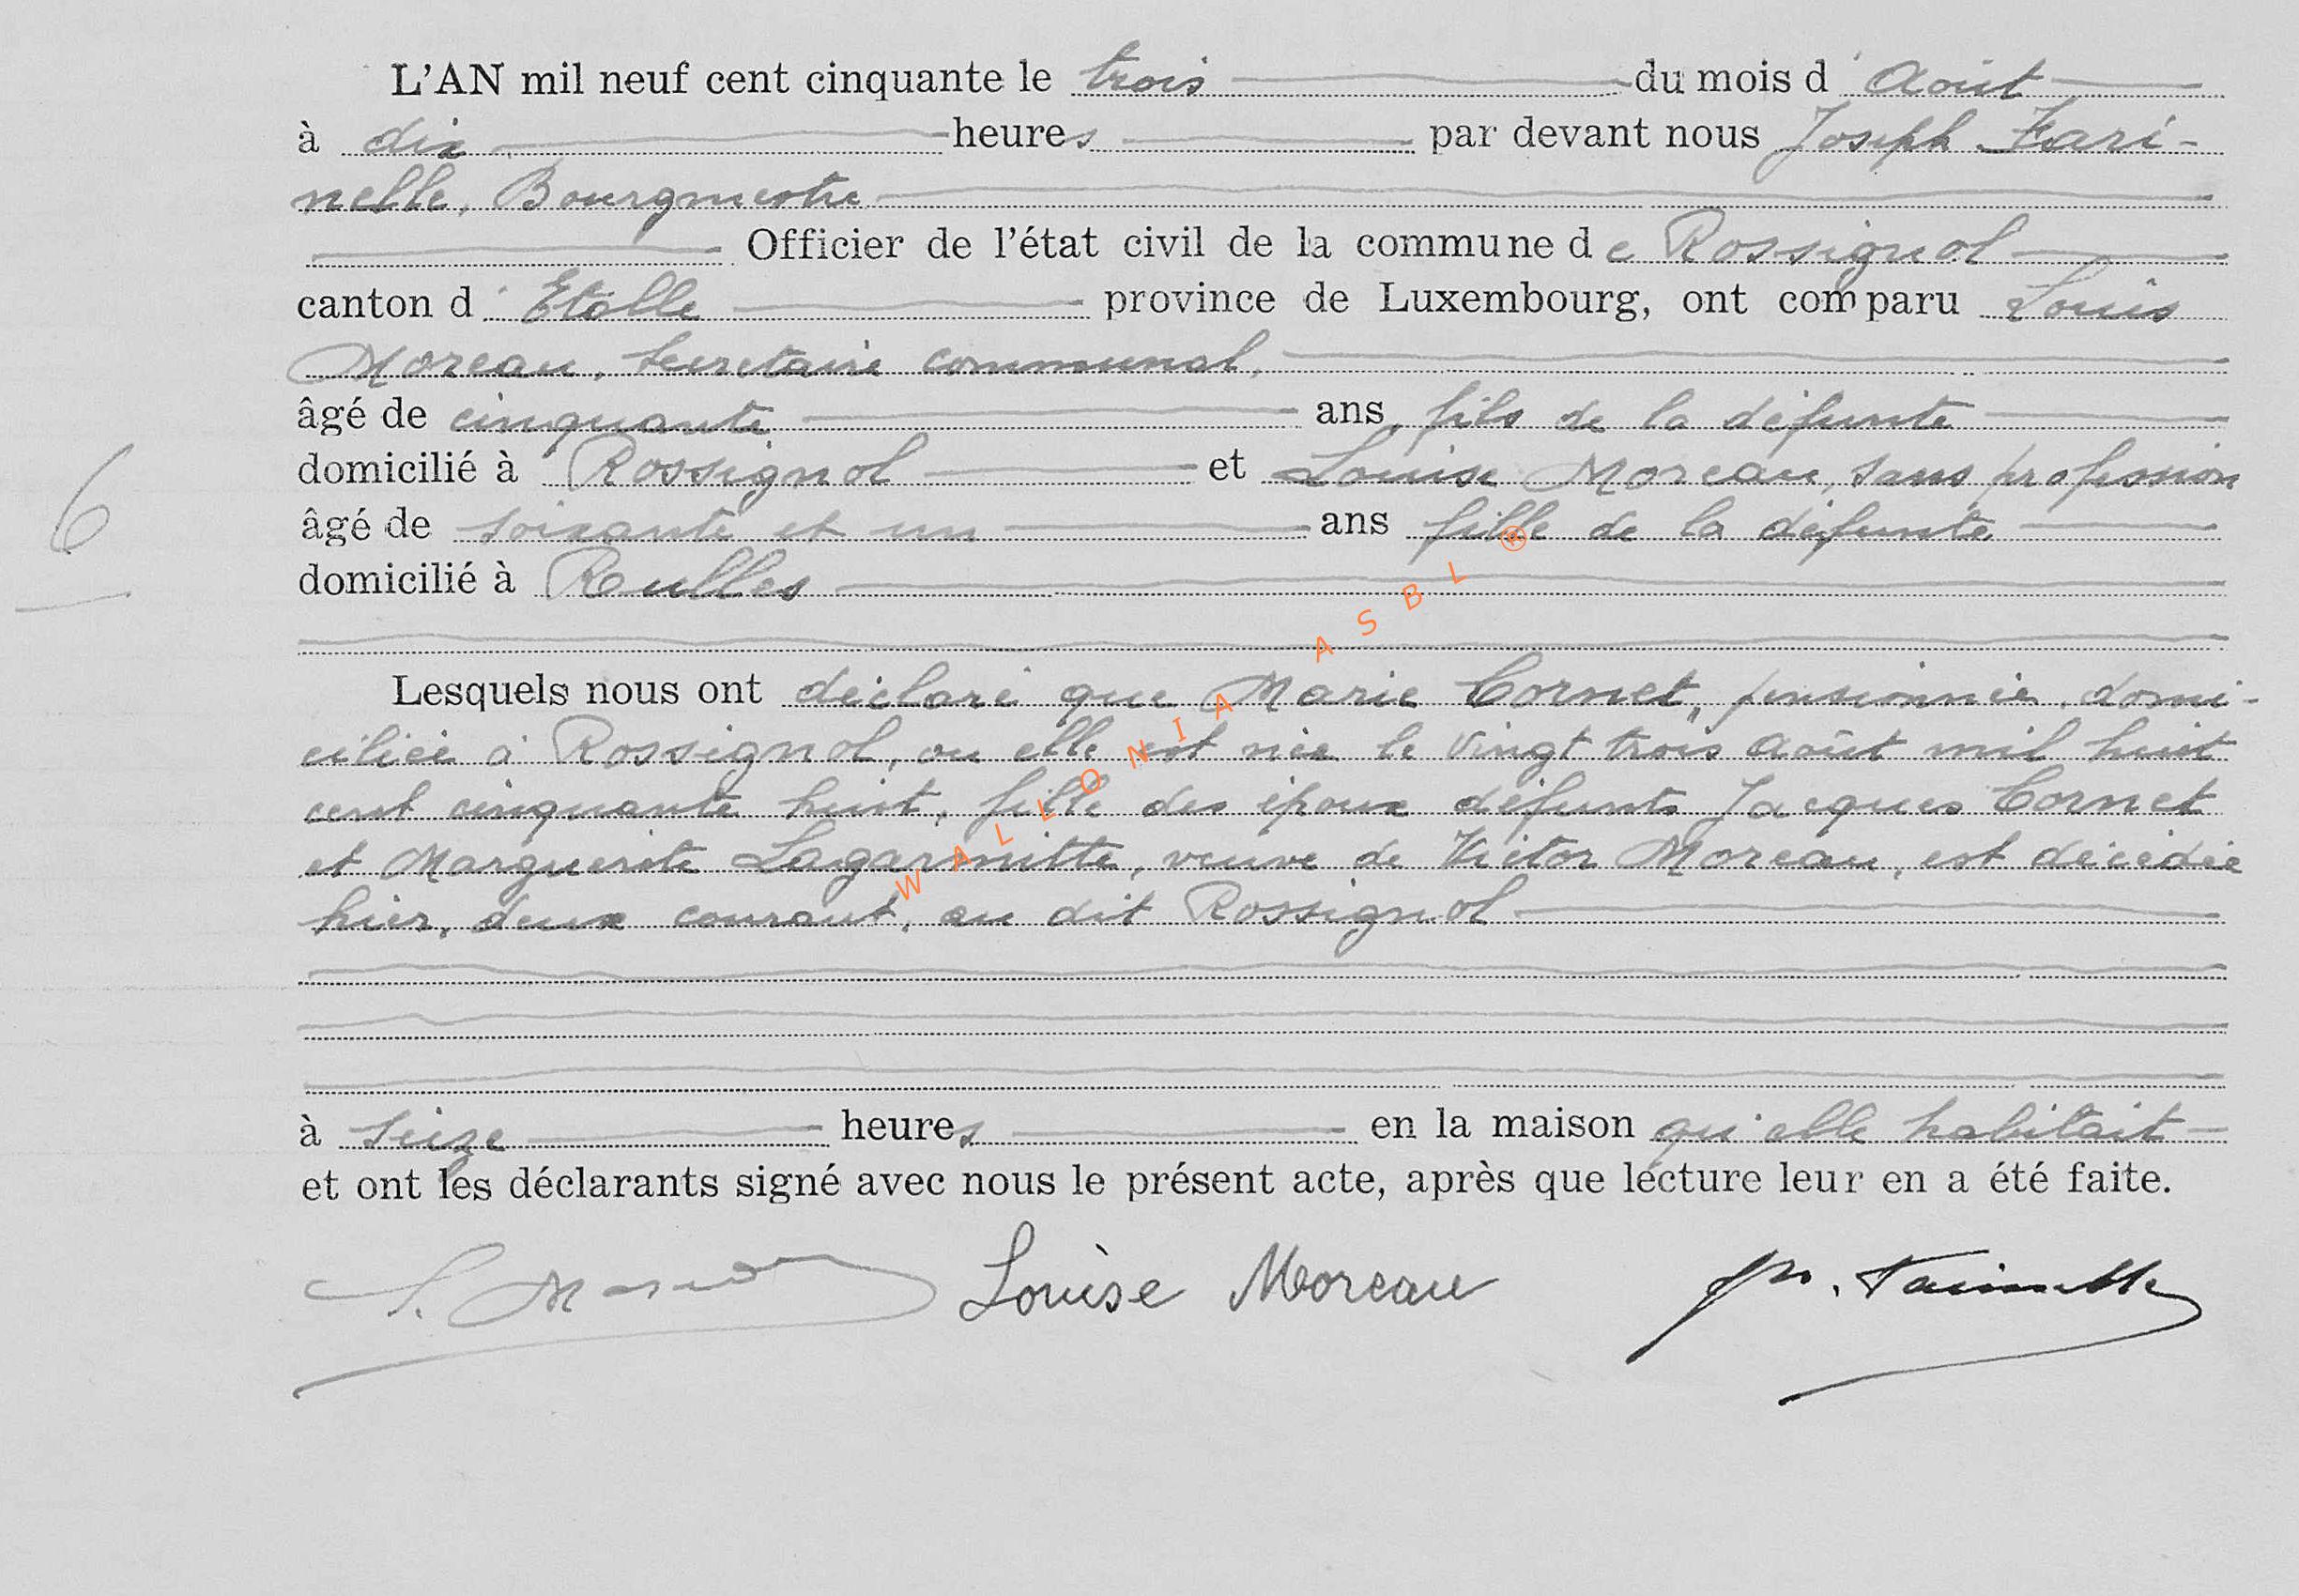 L'AN mil neuf cent cinquante le trois du mois d'Août
à dix heures par devant nous Joseph Fari-
nelle, Bourgmestre
Officier de l'état civil de la commune de Rossignol
canton d'Etalle province de Luxembourg, ont comparu Louis
Moreau, secrétaire communal,
âgé de cinquante ans, fils de la défunte
domicilié à Rossignol et Louise Moreau, sans profession
6
âgé de soixante et un ans fille de la défunte
domicilié à Rulles
Lesquels nous ont déclaré que Marie Cornet, pensionnée, domi-
ciliée à Rossignol, ou elle est née le vingt trois août mil huit
cent cinquante huit, fille des époux défunts Jacques Cornet
et Marguerite Lagarmitte, veuve de Victor Moreau, est décédée
hier, deux courant, au dit Rossignol
à seize heures en la maison qu'elle habitait
et ont les déclarants signé avec nous le présent acte, après que lecture leur en a été faite.
L. Moreau Louise Moreau Jh. Farinelle
WALLONIA ASBL ®